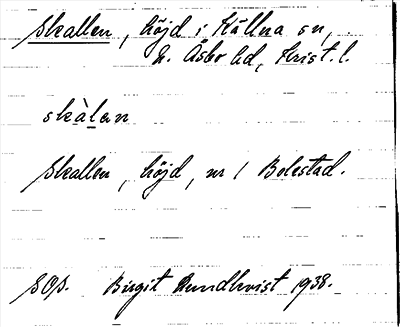 Skallen, höjd i Källna sn,
N. Åsbo hd, Krist. l.
skàlen
Skallen, höjd, nr 1 Bolestad.
SOp. Birgit Lundkvist 1938.